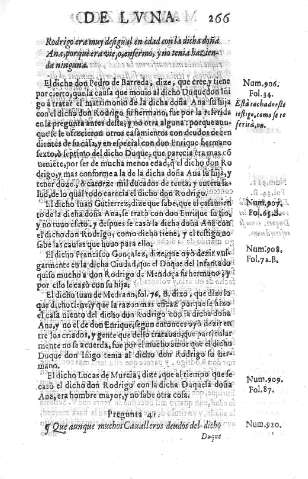 DE LVNA. 266
Rodrigo era muy desigual en edad con la dicha doña
Ana, porque era viejo, enfermo, y no tenia hazien-
da ninguna.
El dicho don Pedro de Barreda, dize, que cree, y tiene
por cierto, que la causa que mouio al dicho Duque don Iñi
go a tratar el matrimonio de la dicha doña Ana su hija
con el dicho don Rodrigo su hermano, fue por la referida
en la pregunta antes desta, y no otra alguna: porque aun-
que se le ofrecieron otros casamientos con deudos
dientes de su casa, y en especial con don Enrique hermano
sexto,
uenirle, por ser de mucha menos edad, que el dicho don Ro-
drigo, y mas conforme a la de la dicha doña Ana su hija, y
tener doze, ò catorze mil ducados de renta,
lud, de lo qual todo carecia el dicho don Rodrigo.
El dicho Iuan Gutierrez, dize que sabe, que el casamien-
to de la dicha doña Ana, se tratò con don Enrique su tio,
y no tuuo efeto, y despues se casò la dicha doña Ana con
el dicho don Rodrigo, como dicho tiene, y el testigo no
sabe las causas que huuo para ello.
El dicho Francisco Gonçales, dize, que oyò dezir vul-
garmente en la dicha Ciudad, que el Duque del Infantado
quiso mucho a don Rodrigo de Mendoça su hermano, y
por ello le casò con su hija.
El dicho Iuan de Medrano, fol. 76. B. dixo, que
que la razon mas eficaz porque se hizo
el casamiento del dicho don Rodrigo con la dicha doña
Ana, y no el de don Enrique, segun entonces oyò dezir en-
tre los criados, y gente que desto trataua, que particular
mente no se acuerda, fue por el mucho amor que el dicho
Duque don Iñigo tenia al dicho don Rodrigo su her-
mano.
El dicho Lucas de Murcia, dize, que al tiempo que se
casò el dicho don Rodrigo con la dicha Duquesa doña
Ana, era hombre mayor, y no sabe otra cosa.
Pregunta 41.
¶ Que aunque muchos Caualleros deudos del dicho
Duque
Num. 906.
Fol. 54.
Està tachado este
testigo, como se re
ferirà,
Num. 907.
Fol. 65. B.
Num. 908.
Fol. 72. B.
Num. 909.
Fol. 87.
Num. 910.